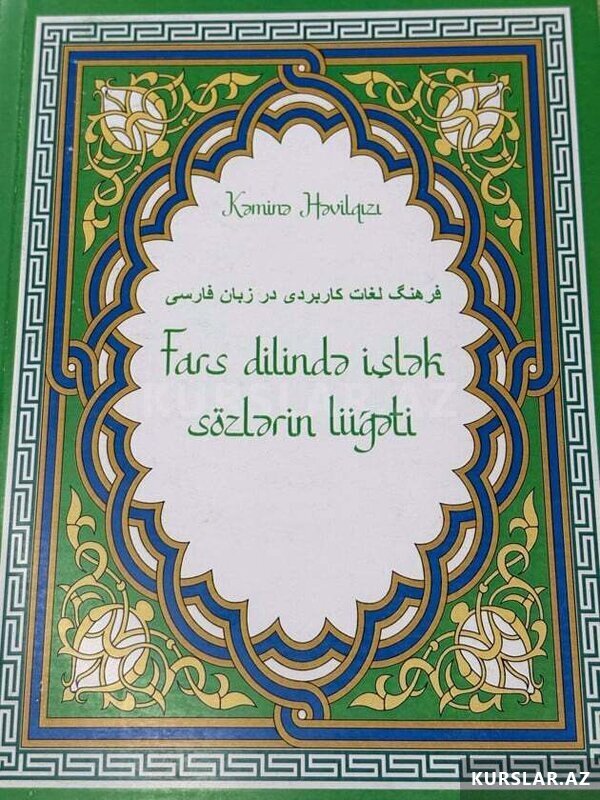 Kəminə Həvilqızı
فرهنگ لغات کاربردی در زبان فارسی
Fars dilində işlək
KURSLAR.AZ
sözlərin lüğəti
KURSLAR.AZ